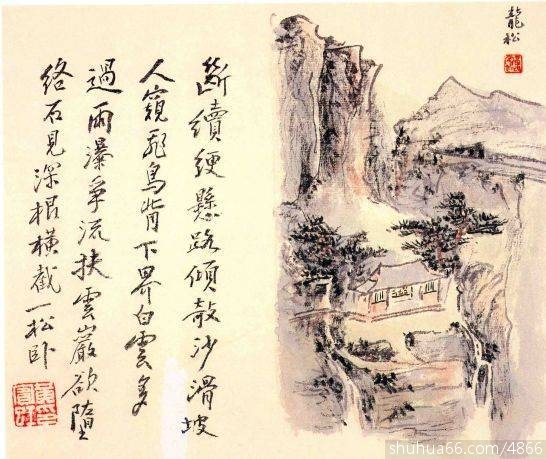 龍松
斷續綆懸路傾敧沙滑坡
人窺飛鳥背下界白雲多
過雨瀑爭流扶雲巖欲墮
絡石見深根橫截一松卧
shuhua66.com/4866